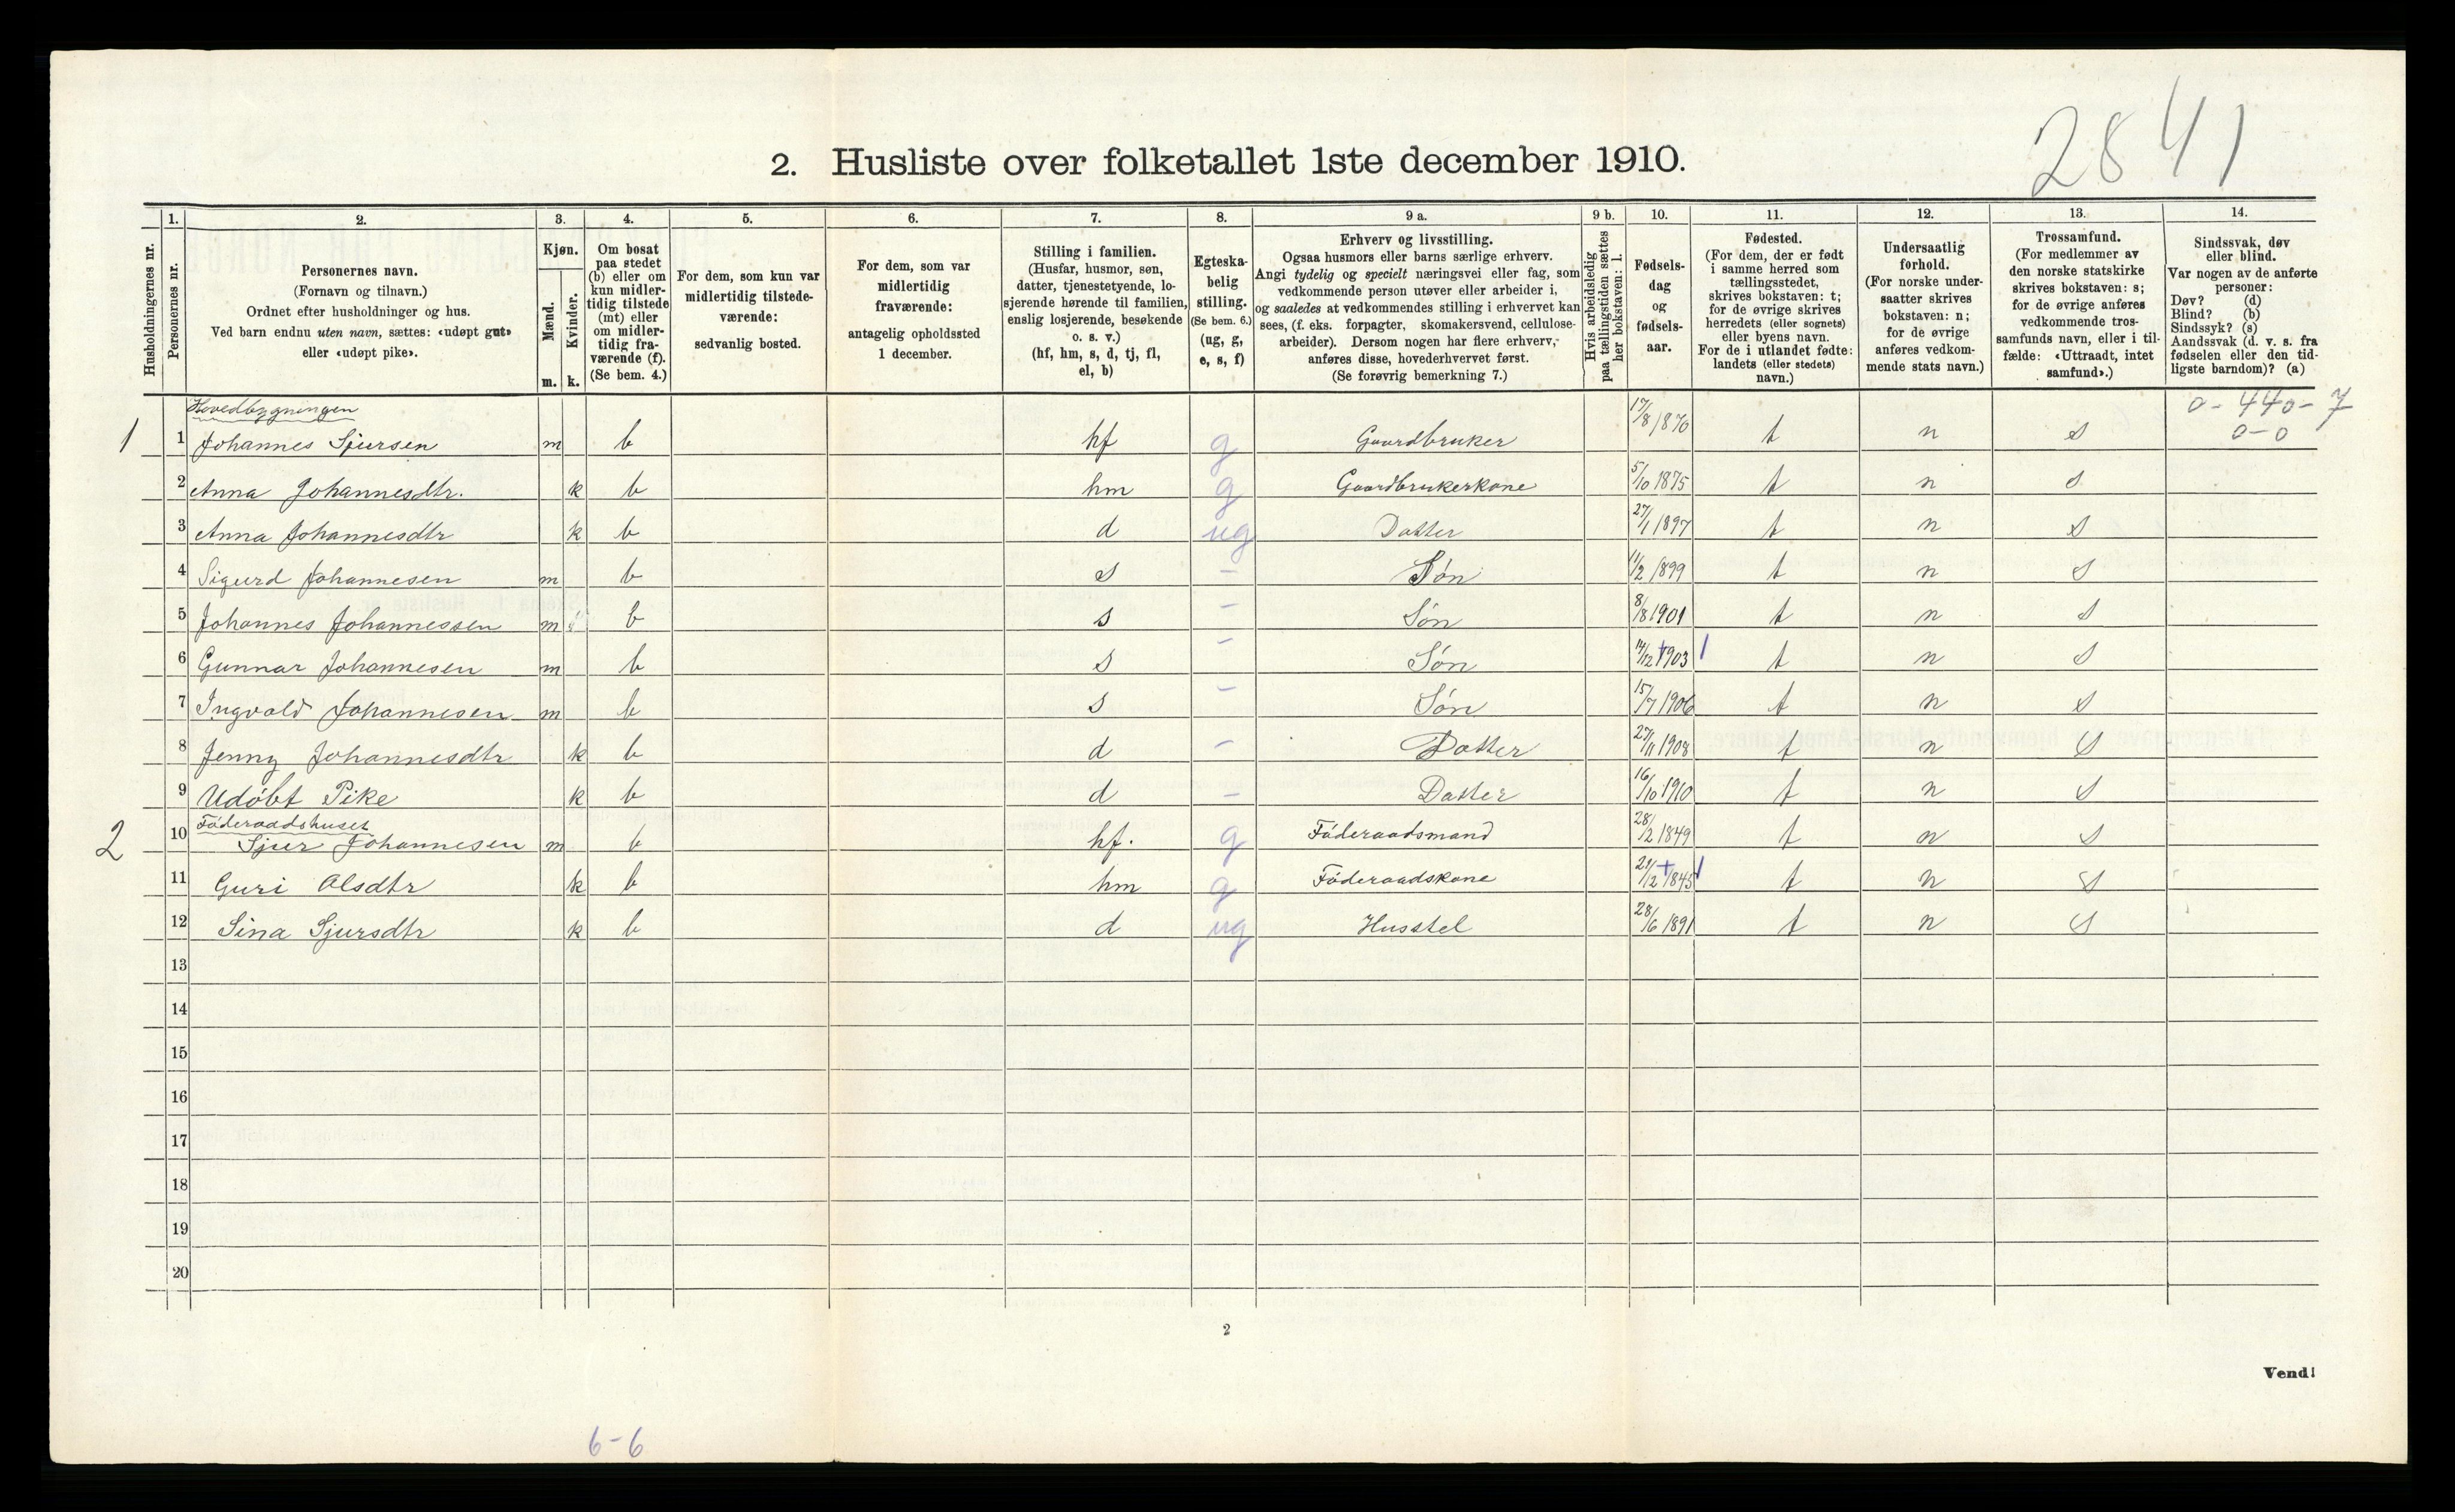 2841
2. Husliste over folketallet 1ste december 1910.
Husholdningernes nr.
1. Personernes nr.
2. Personernes navn. (Fornavn og tilnavn.) Ordnet efter husholdninger og hus. Ved barn endnu uten navn, sættes: «udøpt gut» eller «udøpt pike».
3. Kjøn. Mænd. m. Kvinder. k.
4. Om bosat paa stedet (b) eller om kun midlertidig tilstede (mt) eller om midlertidig fraværende (f). (Se bem. 4.)
5. For dem, som kun var midlertidig tilstedeværende: sedvanlig bosted.
6. For dem, som var midlertidig fraværende: antagelig opholdssted 1 december.
7. Stilling i familien. (Husfar, husmor, søn, datter, tjenestetyende, losjerende hørende til familien, enslig losjerende, besøkende o. s. v.) (hf, hm, s, d, tj, fl, el, b)
8. Egteskabelig stilling. (Se bem. 6.) (ug, g, e, s, f)
9 a. Erhverv og livsstilling. Ogsaa husmors eller barns særlige erhverv. Angi tydelig og specielt næringsvei eller fag, som vedkommende person utøver eller arbeider i, og saaledes at vedkommendes stilling i erhvervet kan sees, (f. eks. forpagter, skomakersvend, cellulosearbeider). Dersom nogen har flere erhverv, anføres disse, hovederhvervet først. (Se forøvrig bemerkning 7.)
9 b. Hvis arbeidsledig paa tællingstiden sættes her bokstaven: l.
10. Fødselsdag og fødselsaar.
11. Fødested. (For dem, der er født i samme herred som tællingsstedet, skrives bokstaven: t; for de øvrige skrives herredets (eller sognets) eller byens navn. For de i utlandet fødte: landets (eller stedets) navn.)
12. Undersaatlig forhold. (For norske undersaatter skrives bokstaven: n; for de øvrige anføres vedkommende stats navn.)
13. Trossamfund. (For medlemmer av den norske statskirke skrives bokstaven: s; for de øvrige anføres vedkommende trossamfunds navn, eller i tilfælde: «Uttraadt, intet samfund».)
14. Sindssvak, døv eller blind. Var nogen av de anførte personer: Døv? (d) Blind? (b) Sindssyk? (s) Aandssvak (d. v. s. fra fødselen eller den tidligste barndom)? (a)
Hovedbygningen 0-440-7
1 1 Johannes Sjursen m b hf g Gaardbruker 17/8 1876 t n s 0-0
2 Anna Johannesdtr. k b hm g Gaardbrukerkone 5/10 1875 t n s
3 Anna Johannesdtr k b d ug Datter 27/1 1897 t n s
4 Sigurd Johannesen m b s - Søn 11/2 1899 t n s
5 Johannes Johannessen m b s - Søn 8/8 1901 t n s
6 Gunnar Johannesen m b s - Søn 14/12 1903 t n s
7 Ingvald Johannesen m b s - Søn 15/7 1906 t n s
8 Jenny Johannesdtr k b d - Datter 27/11 1908 t n s
9 Udöbt Pike k b d - Datter 16/10 1910 t n s
Föderaadshuset
2 10 Sjur Johannesen m b hf. g Föderaadsmand 28/2 1849 t n s
11 Guri Olsdtr k b hm g Föderaadskone 21/12 1845 t n s
12 Sina Sjursdtr k b d ug Husstel 28/6 1891 t n s
13
14
15
16
17
18
19
20
2
Vend!
6-6